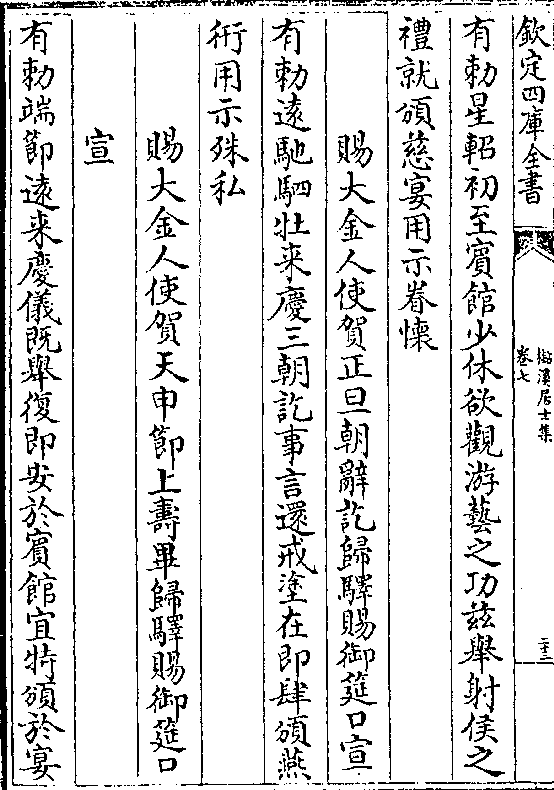 欽定四庫全書
澥溪居士集
卷七
二十二
有勅星軺初至賓館少休欲觀游藝之功兹舉射侯之
禮就頒慈宴用示眷懷
賜大金人使賀正旦朝辭訖歸驛賜御筵口宣
有勅遠馳駟牡来慶三朝訖事言還戒塗在即肆頒燕
衎用示殊私
賜大金人使賀天申節上壽畢歸驛賜御筵口
宣
有勅端節遠来慶儀既舉復即安於賓館宜特頒於宴